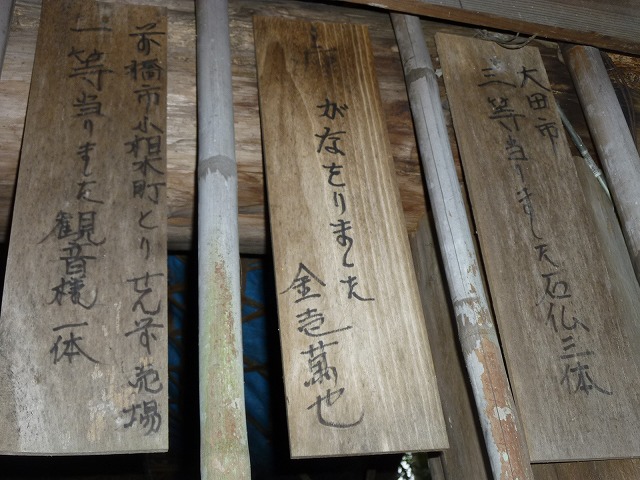 大田市
三等当りました石仏三体
がなをりました
金壱萬也
前橋市小相木町とりせん前売場
一等当りました観音様一体